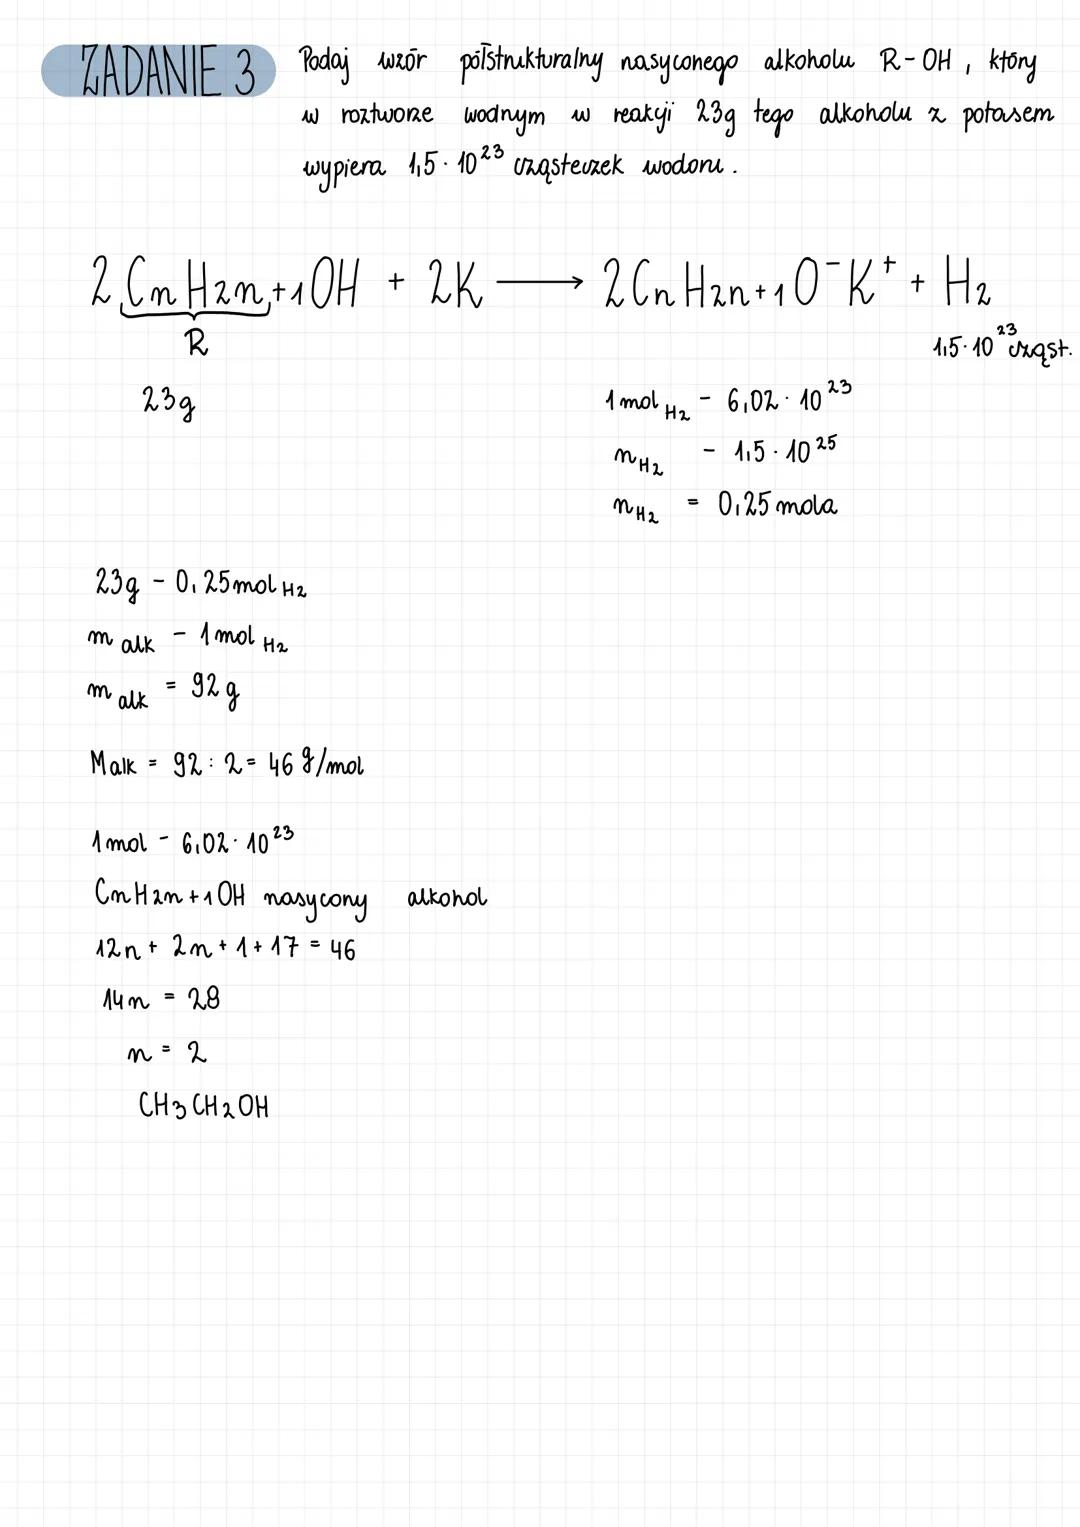 ZADANIE 3 Podaj wzór półstrukturalny nasyconego alkoholu R-OH, który
w roztworze wodnym w reakcji 23g tego alkoholu z potasem
wypiera 1,5 · 10²³ cząsteczek wodoru.
2 CnH2n+1OH + 2K ⟶ 2CnH2n+1O⁻K⁺ + H₂
R
1,5·10²³ cząst.
23g
1 mol H₂ - 6,02 · 10²³
n H₂ - 1,5 · 10²⁵
n H₂ = 0,25 mola
23g - 0,25 mol H₂
m alk - 1 mol H₂
m alk = 92 g
Malk = 92 : 2 = 46 g/mol
1 mol - 6,02 · 10²³
CnH2n+1OH nasycony alkohol
12n + 2n + 1 + 17 = 46
14n = 28
n = 2
CH₃CH₂OH